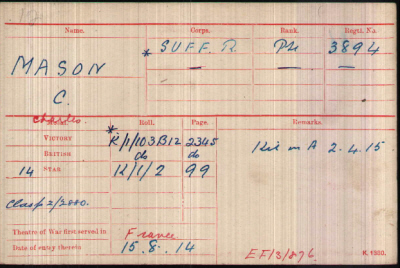 Name. Corps. Rank. Regtl. No.
MASON * SUFF. R. Pte 3894
C.
Charles.
Medal. Roll. Page. Remarks.
VICTORY * K/1/103B12 2345 Kil in A 2.4.15.
BRITISH do do
14 STAR K/1/2 99
Clasp 2/2880.
Theatre of War first served in France
Date of entry therein 15.8.14 EF/3/876
K 1380.